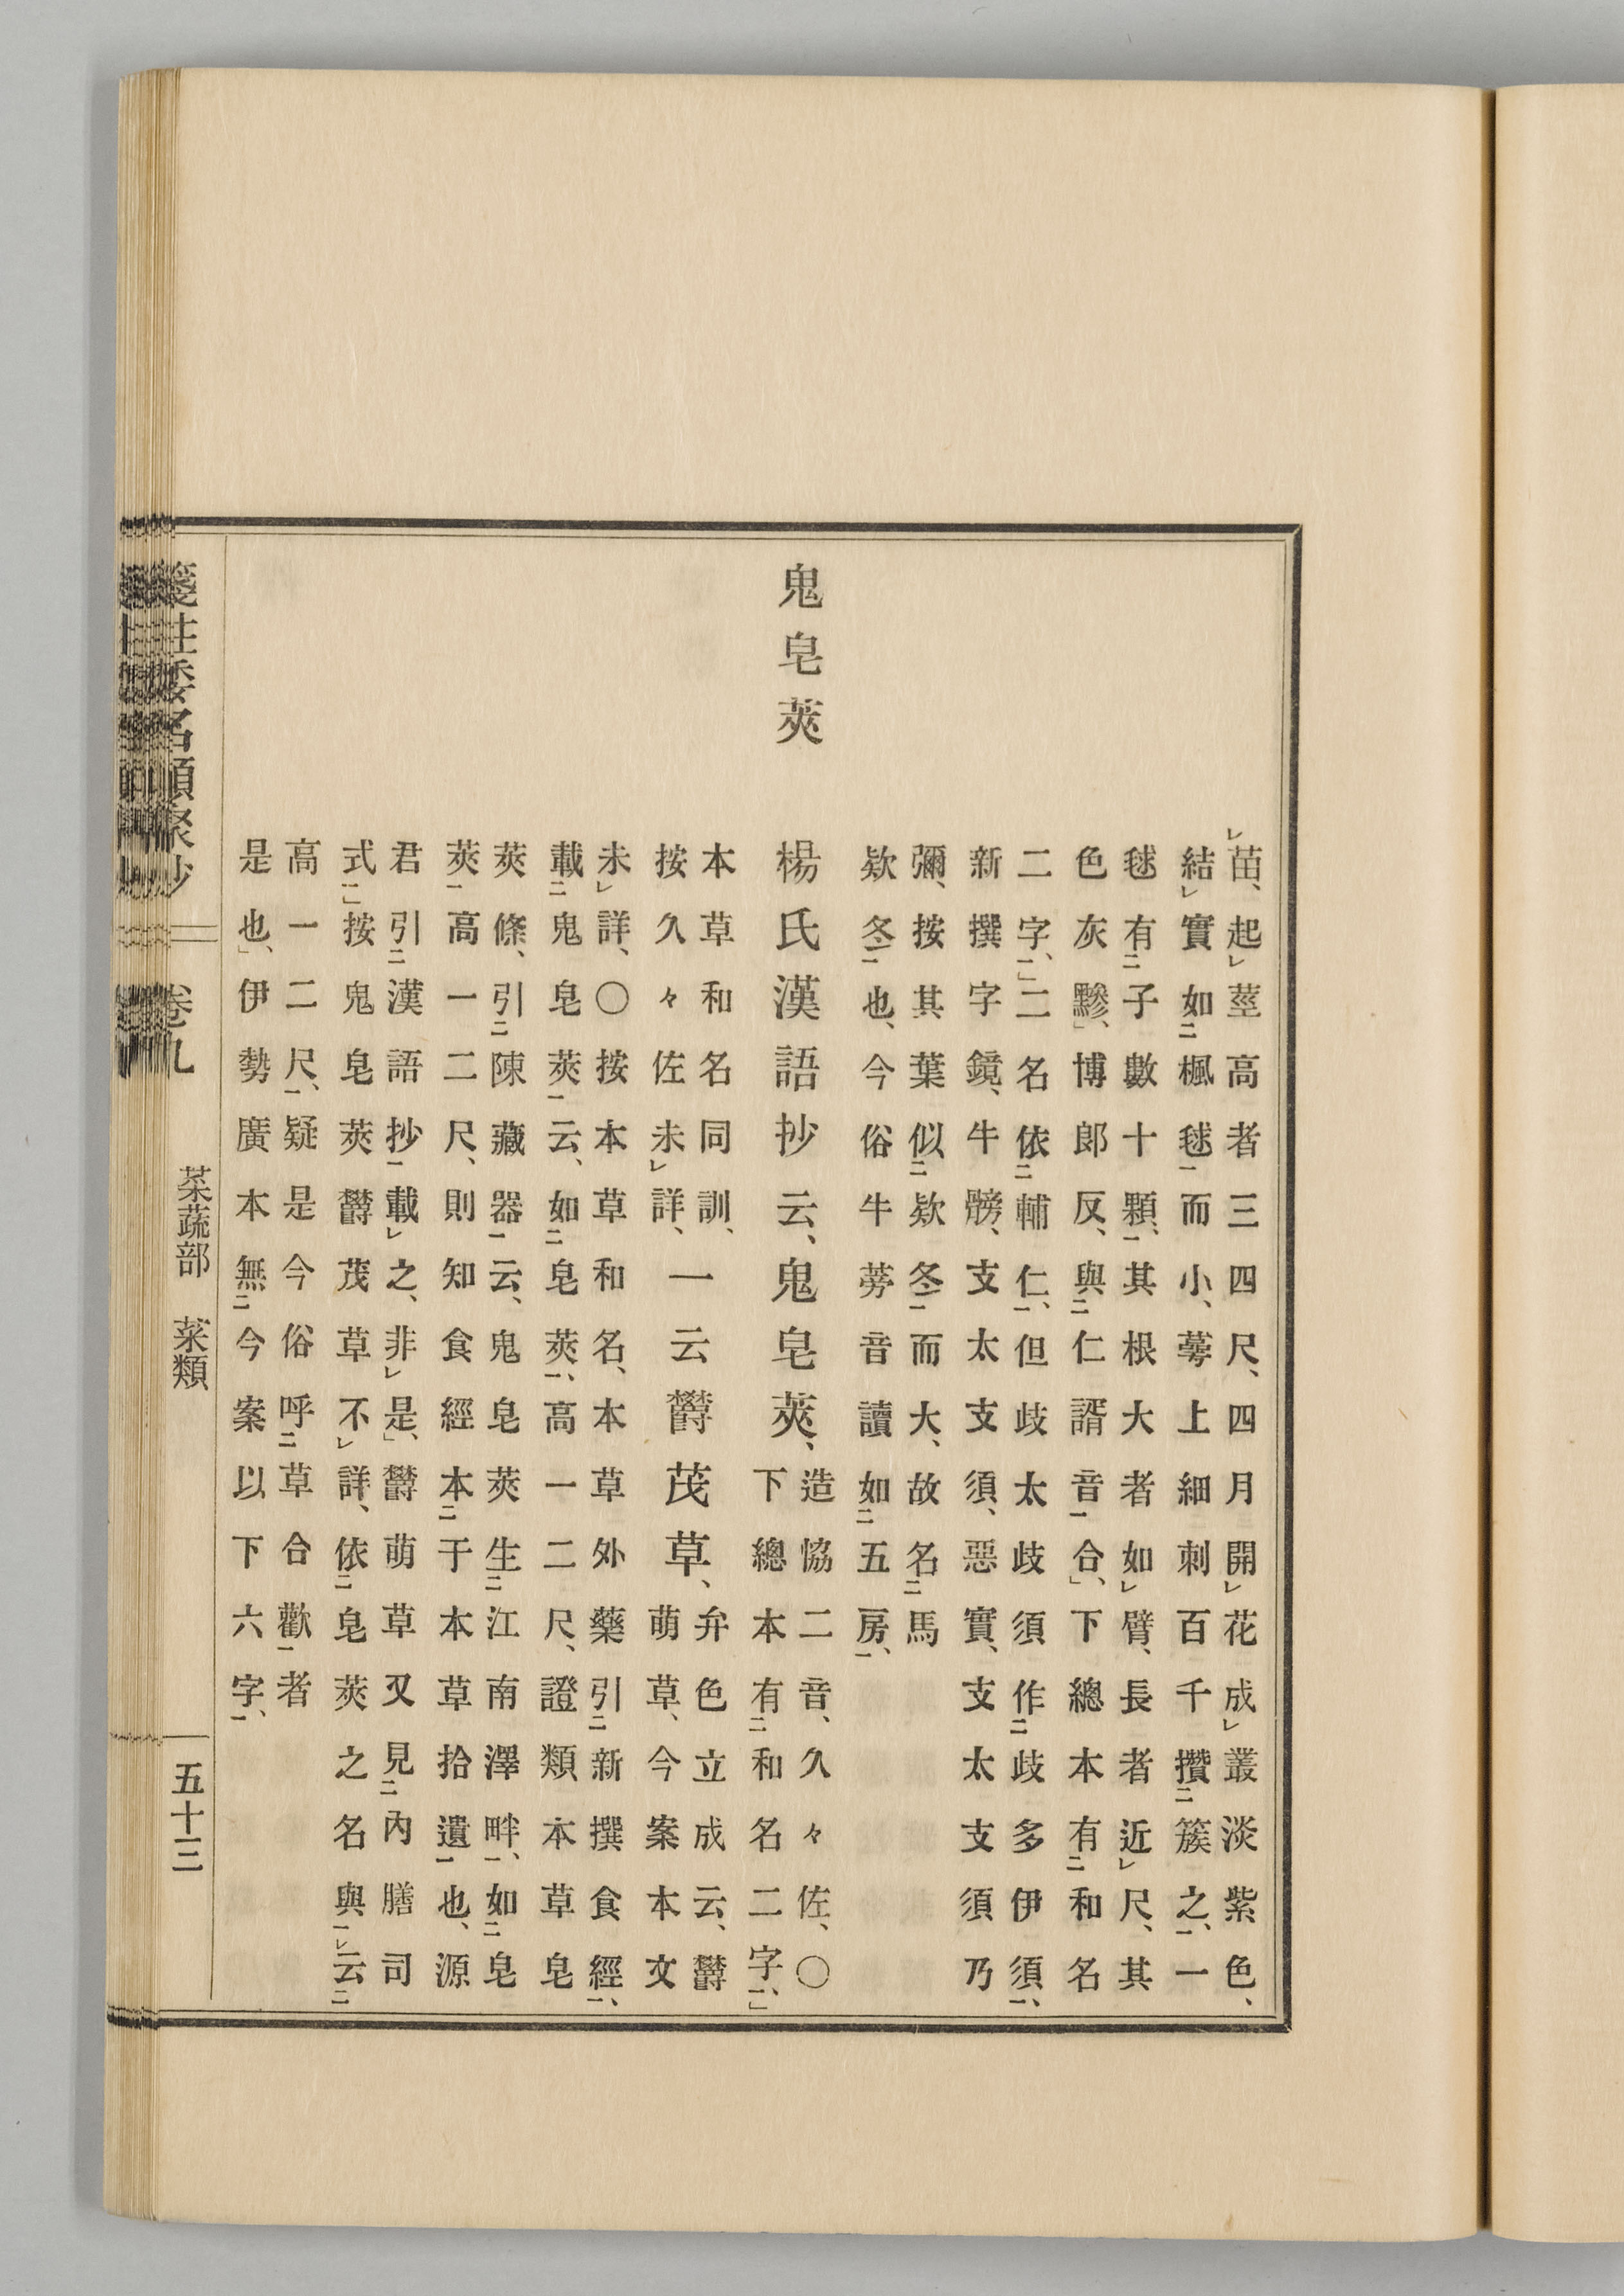 ㆑苗、起㆑莖高者三四尺、四月開㆑花成㆑叢淡紫色、
結㆑實如㆓楓毬㆒而小、蕚上細刺百千攢㆓簇之㆒、一
毬有㆓子數十顆㆒、其根大者如㆑臂、長者近㆑尺、其
色灰黲、」博郎反、與㆓仁諝音㆒合、」下總本有㆓和名
二字㆒、」二名依㆓輔仁㆒、但歧太歧須作㆓歧多伊須㆒、
新撰字鏡、牛髈、支太支須、惡實、支太支須乃
彌、按其葉似㆓欵冬㆒而大、故名㆓馬
欵冬㆒也、今俗牛蒡音讀如㆓五房㆒、
鬼皂莢
楊氏漢語抄云、鬼皂莢、
造協二音、久々佐、○
下總本有㆓和名二字㆒、」
本草和名同訓、
按久々佐未㆑詳、
一云欝茂草、
弁色立成云、欝
萌草、今案本文
未㆑詳、○按本草和名、本草外藥引㆓新撰食經㆒、
載㆓鬼皂莢㆒云、如㆓皂莢㆒、高一二尺、證類本草皂
莢條、引㆓陳藏器㆒云、鬼皂莢生㆓江南澤畔㆒、如㆓皂
莢㆒高一二尺、則知食經本㆓于本草拾遺㆒也、源
君引㆓漢語抄㆒載㆑之、非㆑是、」欝萌草又見㆓內膳司
式㆒」按鬼皂莢欝茂草不㆑詳、依㆓皂莢之名與㆒㆑云㆓
高一二尺㆒、疑是今俗呼㆓草合歡㆒者
是也、」伊勢廣本無㆓今案以下六字㆒、
箋注倭名類聚抄
卷九
菜蔬部 菜類
五十三